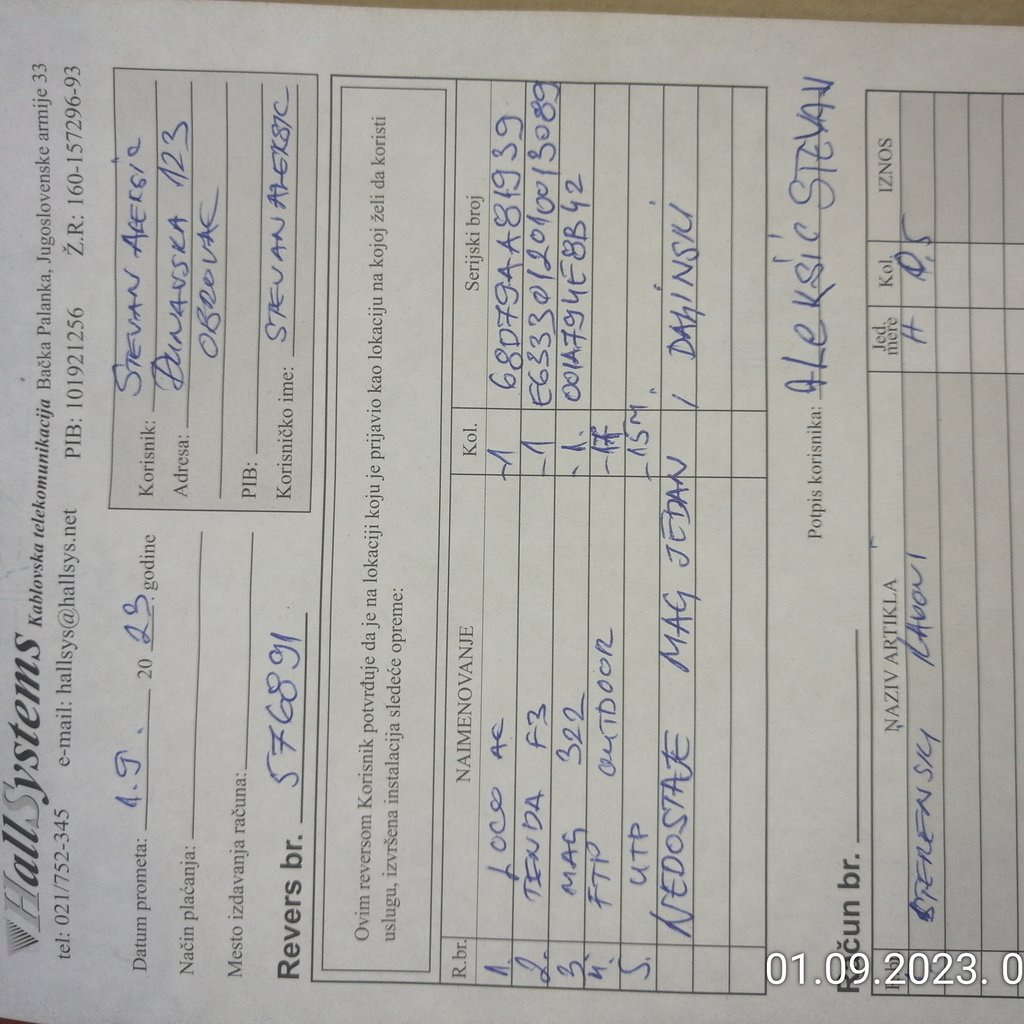 HallSystems Kablovska telekomunikacija Bačka Palanka, Jugoslovenske armije 33
tel: 021/752-345 e-mail: hallsys@hallsys.net PIB: 101921256 Ž.R: 160-157296-93
Datum prometa: 1.9. 20 23 godine
Način plaćanja:
Mesto izdavanja računa:
Revers br. 576891
Korisnik: STEVAN ALEKSIC
Adresa: DUNAVSKA 123
OBROVAC
PIB:
Korisničko ime: STEVAN ALEKSIC
Ovim reversom Korisnik potvrđuje da je na lokaciji koju je prijavio kao lokaciju na kojoj želi da koristi
uslugu, izvršena instalacija sledeće opreme:
R.br. NAIMENOVANJE Kol. Serijski broj
1. LOCO AC -1 68D79AA81939
2. TENDA F3 -1 E6333012010013089
3. MAG 322 -1. 001A794E8B42
4. FTP OUTDOOR
5. UTP -15M.
NEDOSTAJE MAG JEDAN, DALJINSKI
Potpis korisnika: ALEKSIĆ STEVAN
Račun br.
NAZIV ARTIKLA Jed. mere Kol. IZNOS
RADOVI H 0,5
01.09.2023. 0